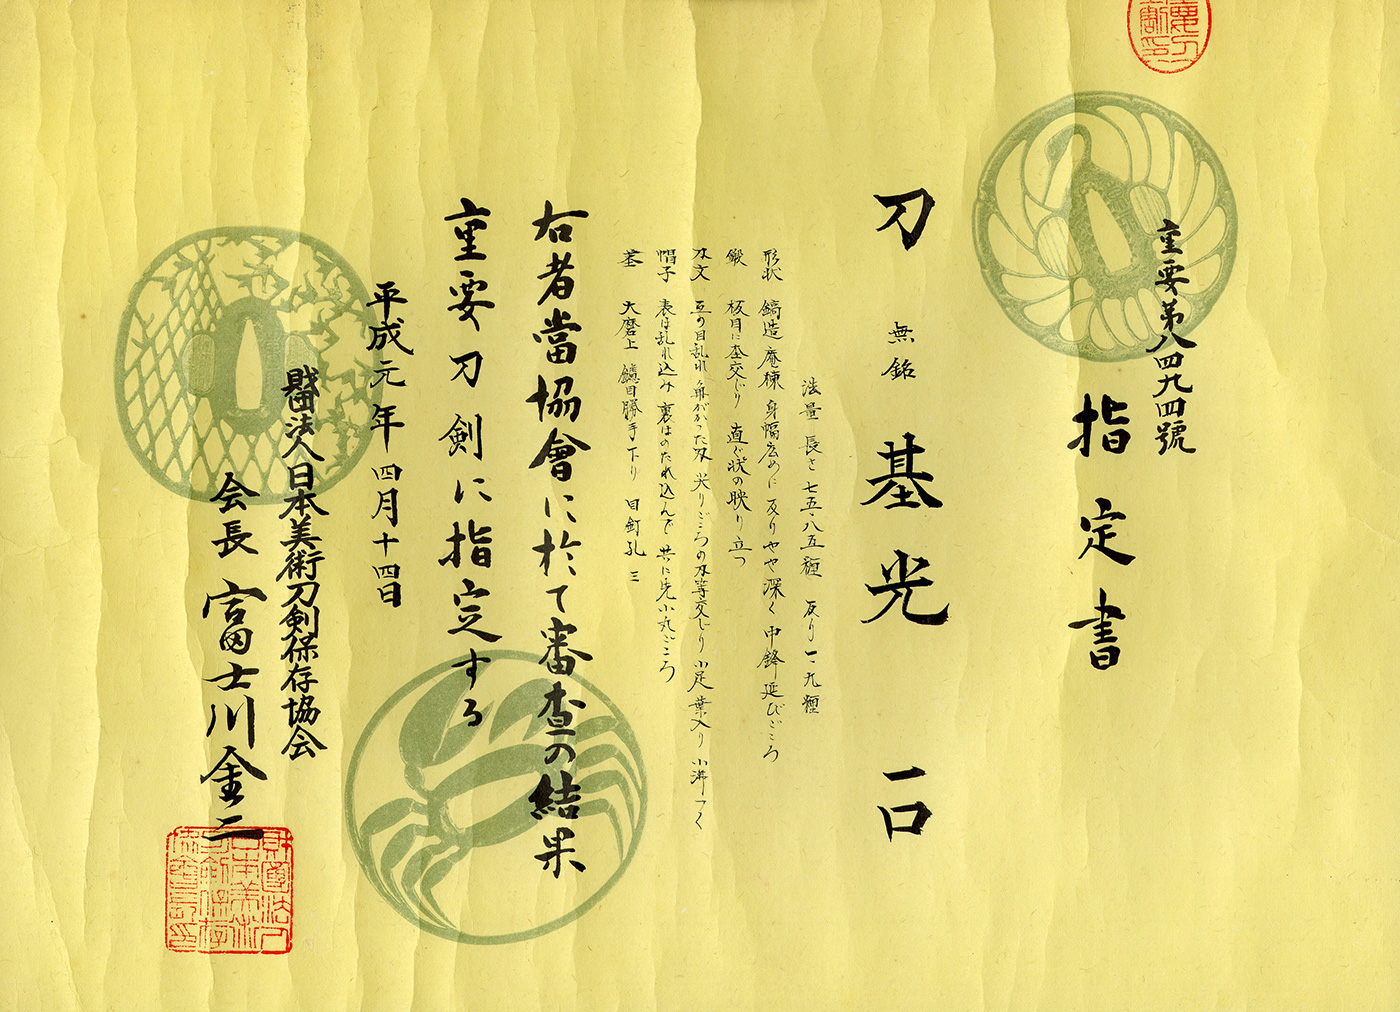 重要第八四九四號
指定書
刀 無銘 基光 一口
法量 長さ 七五・八五糎 反り 一・九糎
形状 鎬造 庵棟 身幅広めに 反りやや深く 中鋒延びごころ
鍛 板目に杢交じり 直ぐ状の映り立つ
刃文 互の目乱れ 角がかった刃 尖りごころの刃等交じり 小足 葉入り 小沸つく
帽子 表は乱れ込み 裏はのたれ込んで 共に先小丸ごころ
茎 大磨上 鑢目勝手下り 目釘孔 三
右者當協會に於て審査の結果
重要刀剣に指定する
平成元年四月十四日
財団法人日本美術刀剣保存協会
会長 富士川金二